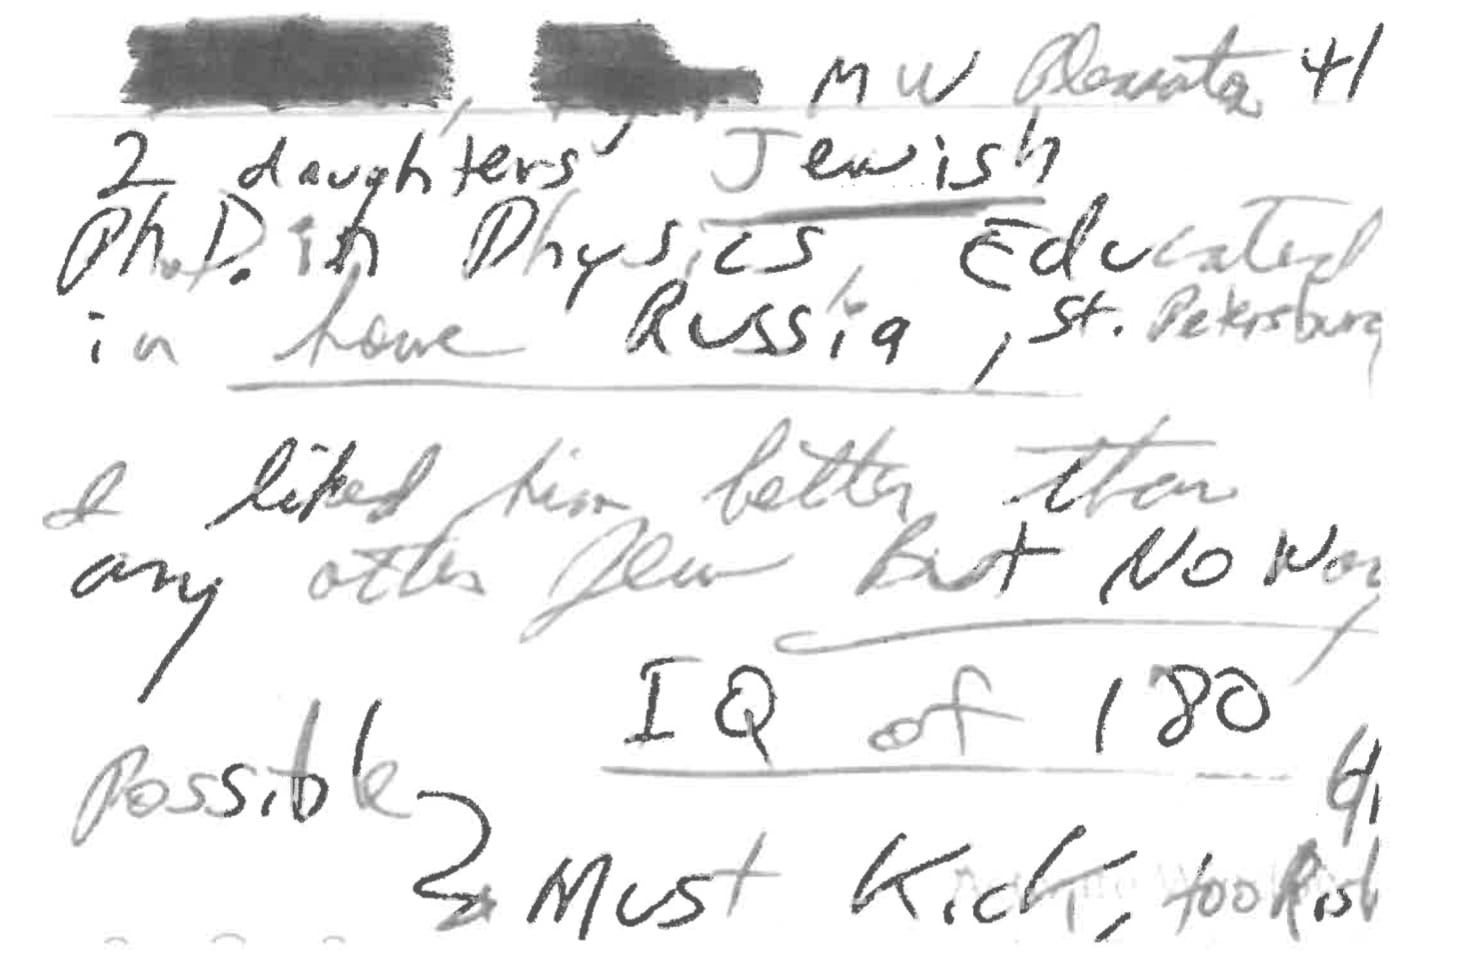 MW 41
2 daughters, Jewish
Ph.D. in Physics Educated
in Russia, St. Petersburg
I liked him better than
any other Jew But No Way
IQ of 180
Possible
Must Kick, too Risk